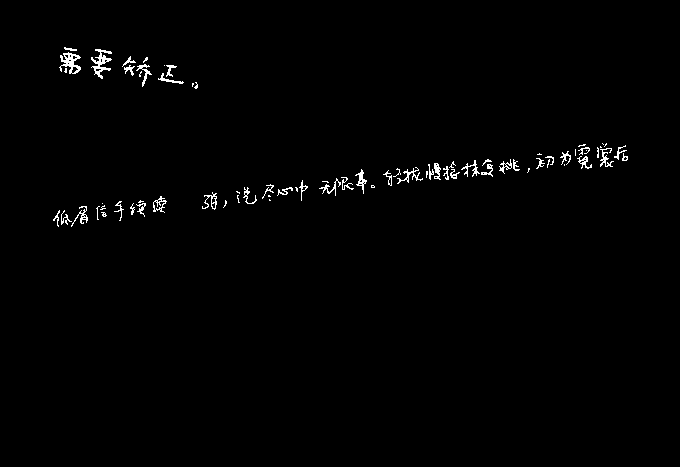 需要矫正。
低眉信手续续 弹，说尽心中 无限事。轻拢慢捻抹复挑，初为霓裳后